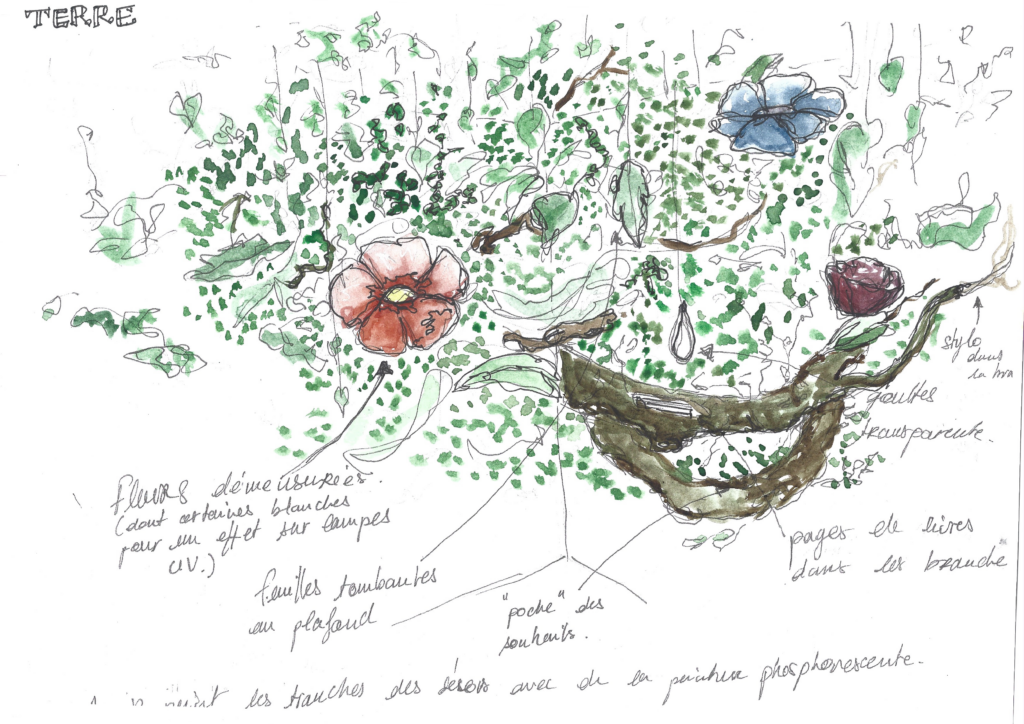 TERRE
stylo
dans
la
gouttes
transparente.
fleurs démeusurées.
(dont certaines blanches
pour un effet sur lampes
UV.)
feuilles tombantes
au plafond
"poche" des
souhaits.
pages de livres
dans les branche
les tranches des avec de la peinture phosphorescente.